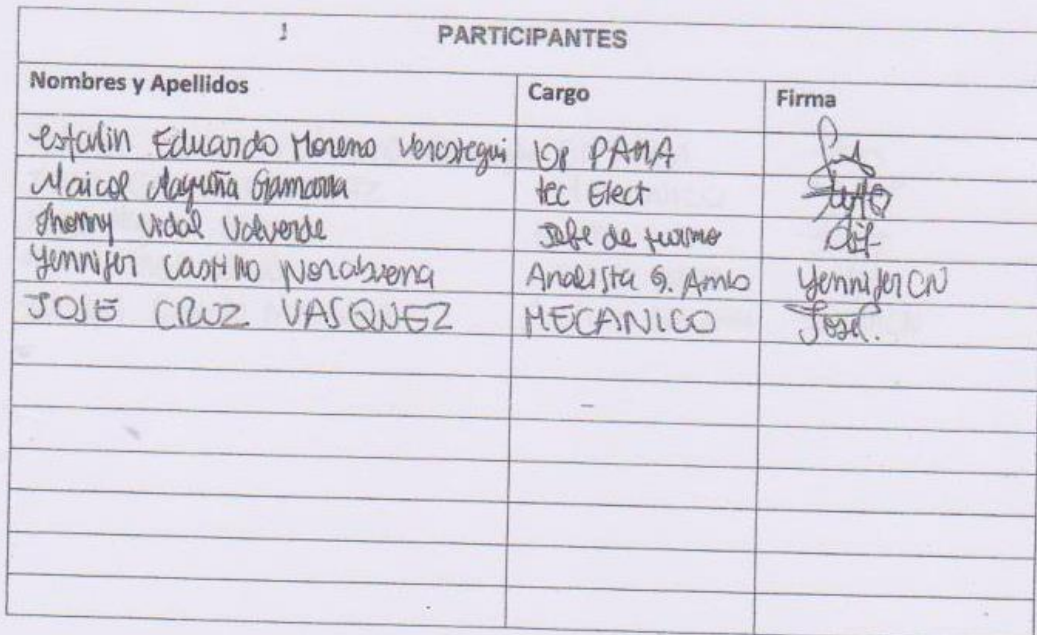 PARTICIPANTES
Nombres y Apellidos Cargo Firma
Estalin Eduardo Moreno Verastegui Op PAMA
Maicol Maguiña Gamarra tec Elect
Jhonny Vidal Valverde Jefe de turno
Yennifer Castillo Norabuena Analista G. Amb Yennifer CN
JOSE CRUZ VASQUEZ MECANICO José.